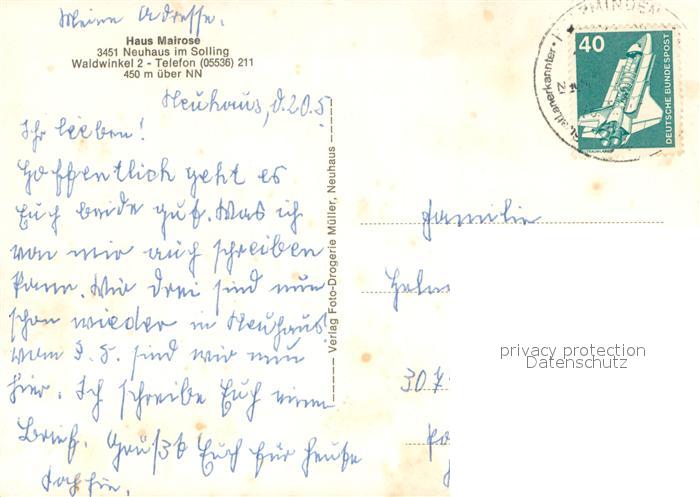 Meine Adresse.
Haus Mairose
3451 Neuhaus im Solling
Waldwinkel 2 - Telefon (05536) 211
450 m über NN
Neuhaus, d. 20.5
Ihr Lieben!
Hoffentlich geht es
Euch beide gut. Was ich
von mir auch schreiben
kann. Wir drei sind nun
schon wieder in Neuhaus.
vom 9. 5. sind wir nun
hier. Ich schreibe Euch einen
Brief. Grüßt Euch für heute
Verlag Foto-Drogerie Müller, Neuhaus
40
DEUTSCHE BUNDESPOST
MINDEN
anerkannter
Familie
307
privacy protection
Datenschutz